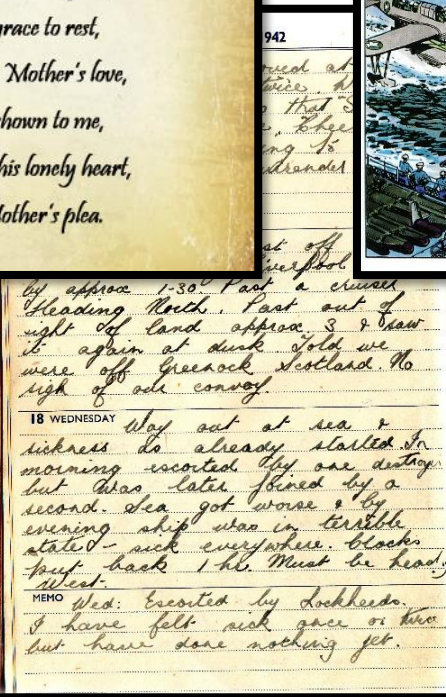 grace to rest,
Mother's love,
shown to me,
his lonely heart,
Mother's plea.
942
at
twice,
that
ing
surrender
off
Liverpool
by approx 1-30. Past a cruiser
Heading North. Past out of
sight of land approx 3 & saw
it again at dusk. Told we
were off Greenock Scotland. No
sign of our convoy.
18 WEDNESDAY Way out at sea &
sickness as already started. In
morning escorted by one destroy
but was later joined by a
second. Sea got worse & by
evening ship was in terrible
state - sick everywhere. Clocks
put back 1 hr. Must be head
West.
MEMO Wed: Escorted by Lockheeds.
I have felt sick once or twice
but have done nothing yet.